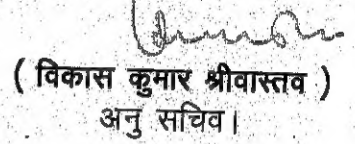 ( विकास कुमार श्रीवास्तव )
अनु सचिव।